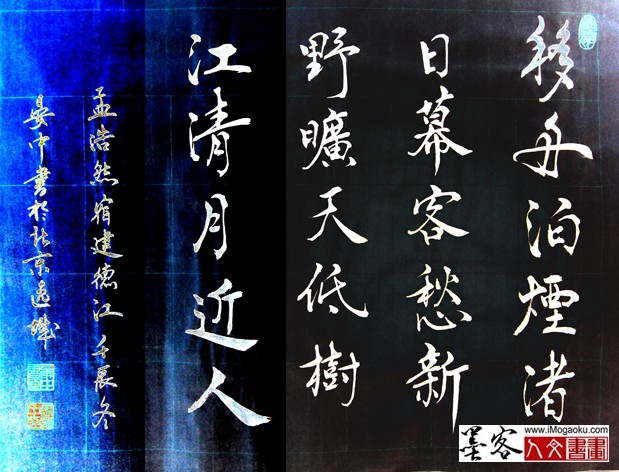 移舟泊煙渚
日幕客愁新
野曠天低樹
江清月近人
孟浩然宿建德江 壬辰冬
晏中書於北京
www.iMogaoku.com
墨客
人文書畫